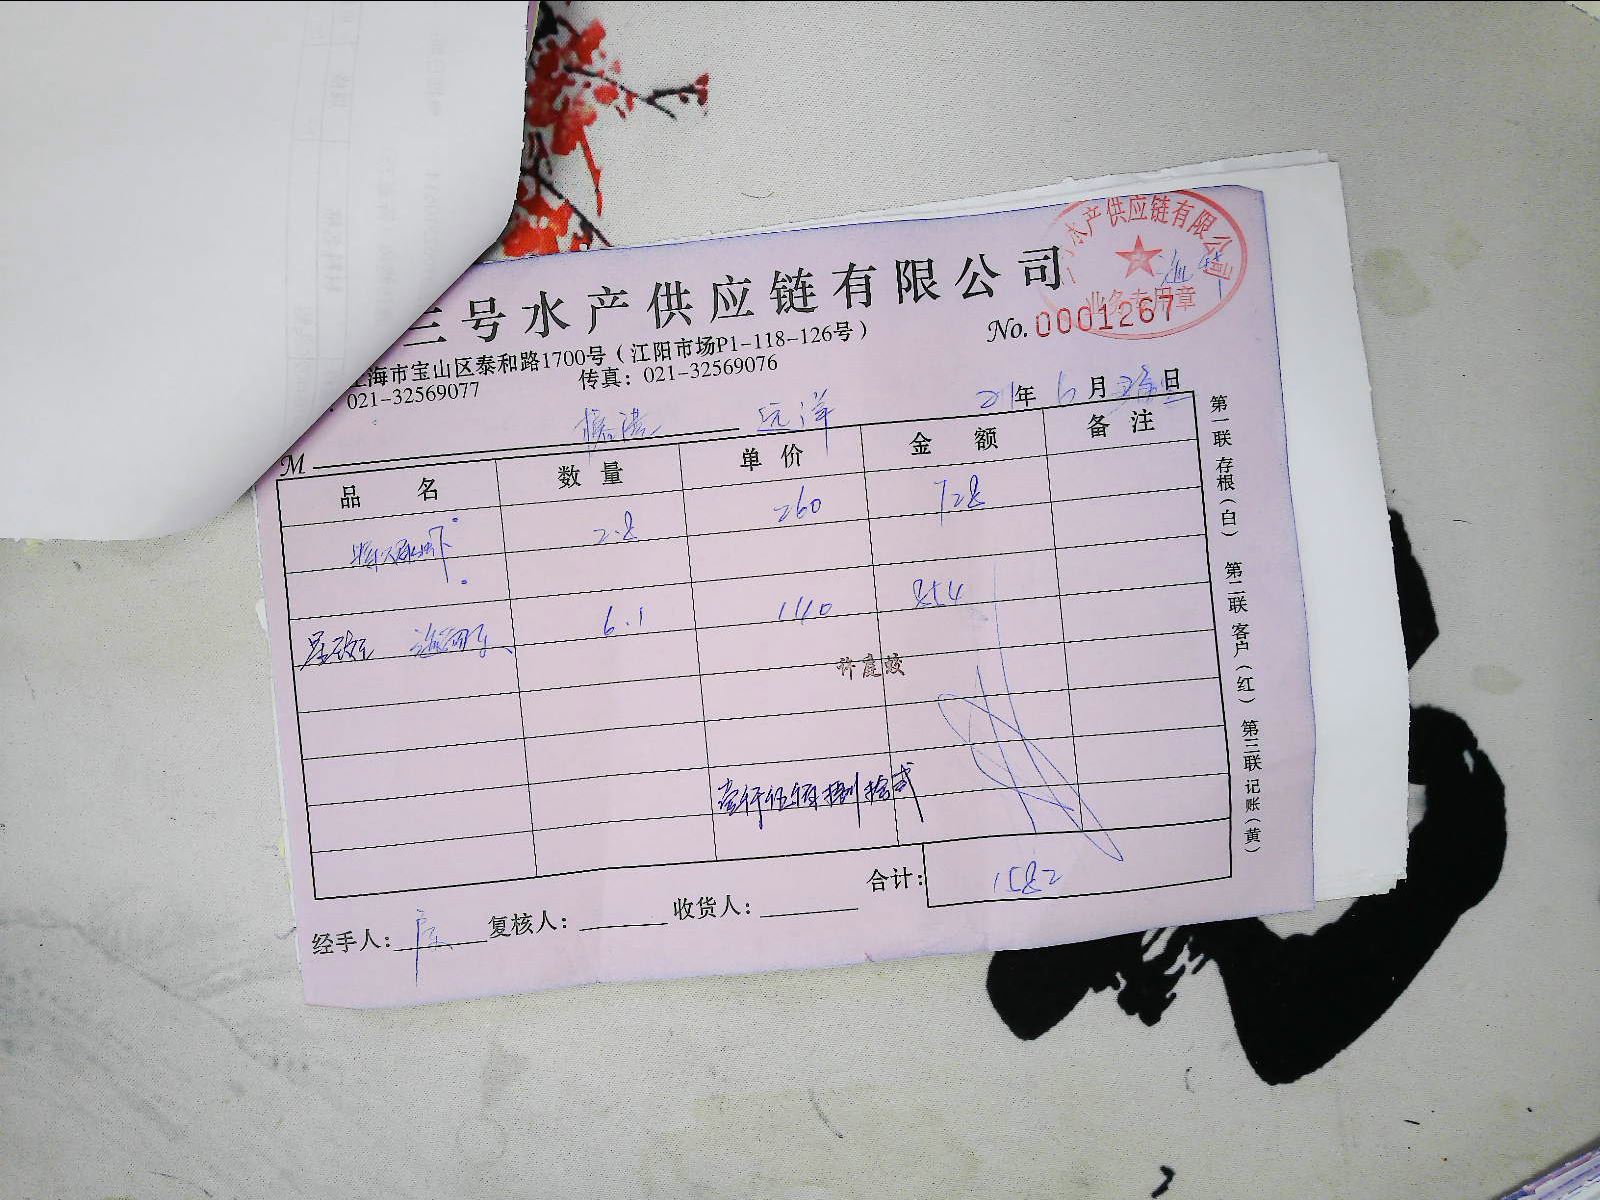 三号水产供应链有限公司
水产供应链有限公司
业务专用章
No. 0001267
上海市宝山区泰和路1700号（江阳市场P1-118-126号）
021-32569077 传真：021-32569076
远洋 21年6月 日
M
品名 数量 单价 金额 备注
2.8 260 728
6.1 140 854
许庭蛟
壹仟伍佰捌拾贰
合计： 1582
经手人： 复核人： 收货人：
第一联 存根（白） 第二联 客户（红） 第三联 记账（黄）